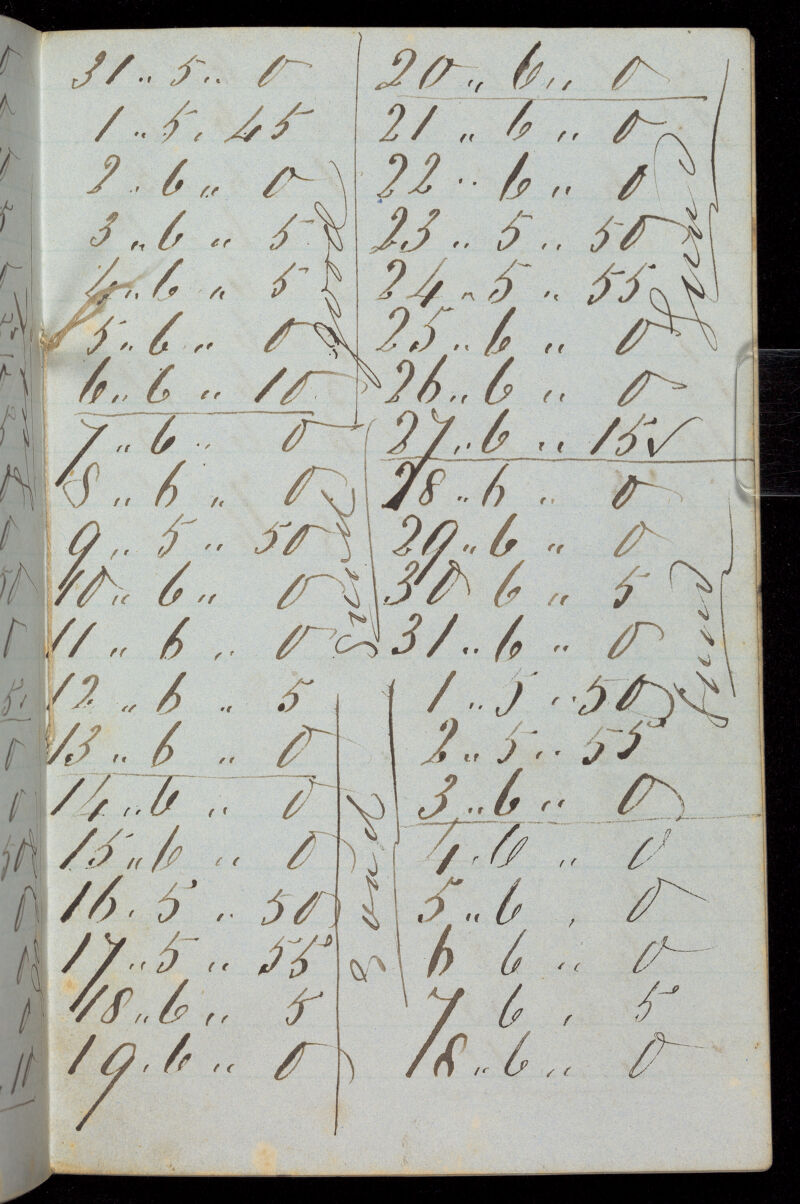 31 " 5 " 0
1 " 5 " 45
2 " 6 " 0
3 " 6 " 5
4 " 6 " 5
5 " 6 " 0
6 " 6 " 10
good
7 " 6 " 0
8 " 6 " 0
9 " 5 " 50
10 " 6 " 0
11 " 6 " 0
12 " 6 " 5
13 " 6 " 0
good
14 " 6 " 0
15 " 6 " 0
16 " 5 " 50
17 " 5 " 55
18 " 6 " 5
19 " 6 " 0
good
20 " 6 " 0
21 " 6 " 0
22 " 6 " 0
23 " 5 " 50
24 " 5 " 55
25 " 6 " 0
26 " 6 " 0
27 " 6 " 15 ✓
good
28 " 6 " 0
29 " 6 " 0
30 6 " 5
31 " 6 " 0
1 " 5 " 50
2 " 5 " 55
3 " 6 " 0
good
4 " 6 " 0
5 " 6 " 0
6 6 " 0
7 6 " 5
8 " 6 " 0